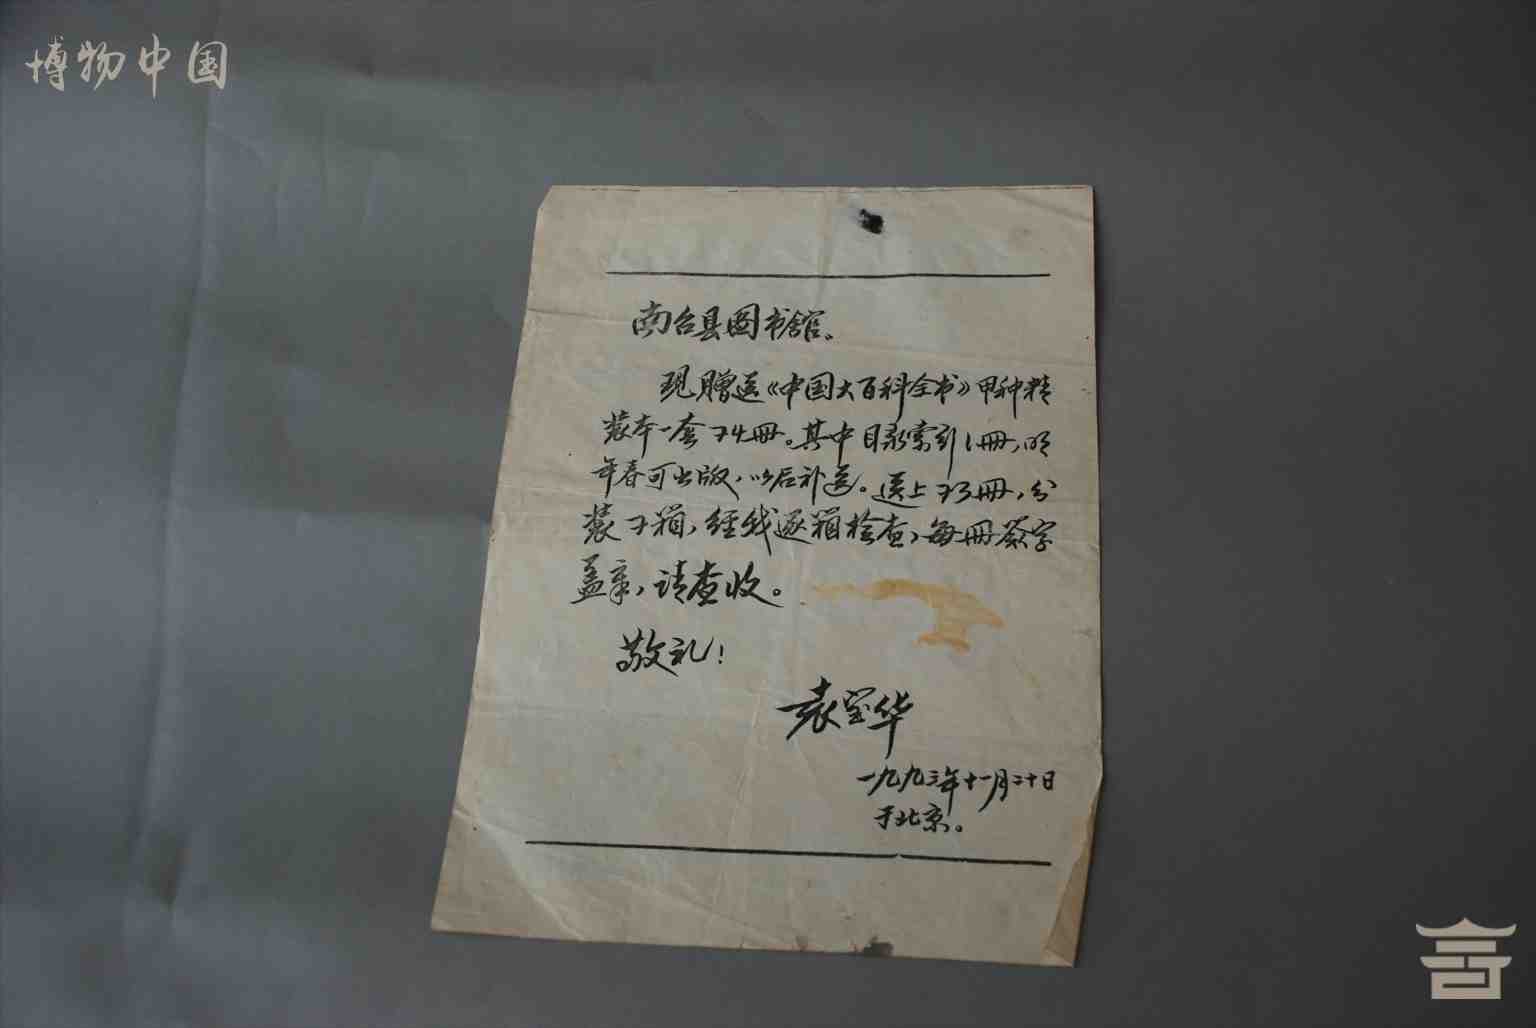 博物中国
南台县图书馆。
现赠送《中国大百科全书》甲种精
装本一套74册。其中目录索引1册，明
年春可出版，以后补送。送上73册，分
装7箱，经我逐箱检查，每册签字
盖章，请查收。
敬礼！
袁宝华
一九九三年十一月二十日
于北京。